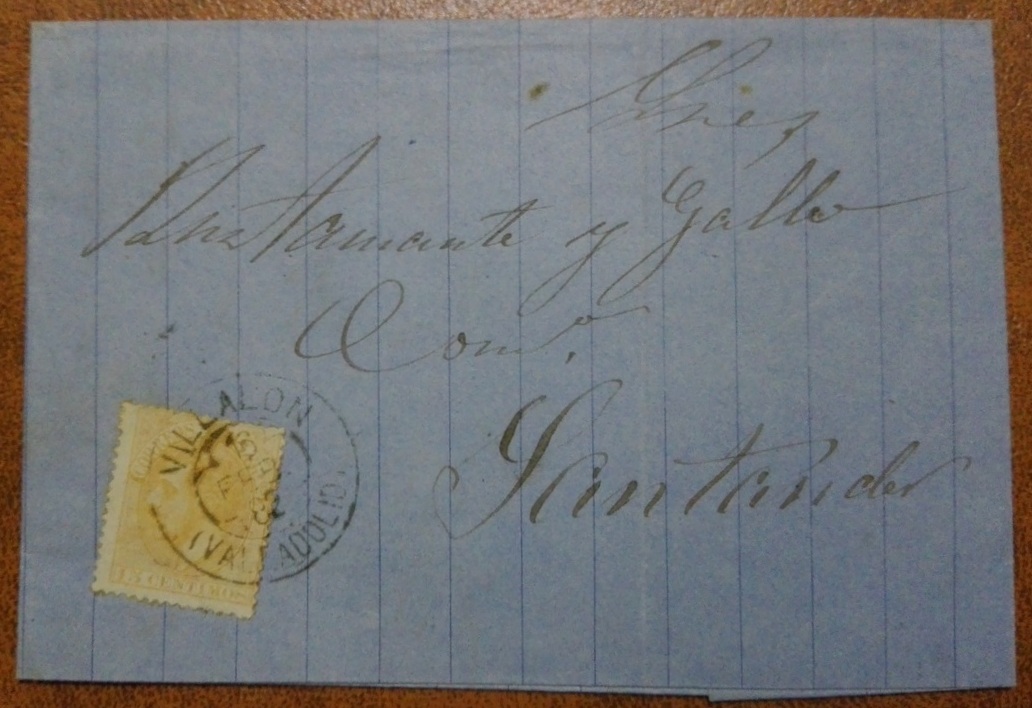 Sres
Bustamante y Gallo
Com.º
Santander
VILLALON
FEB
(VALLADOLID)
15 CENTIMOS